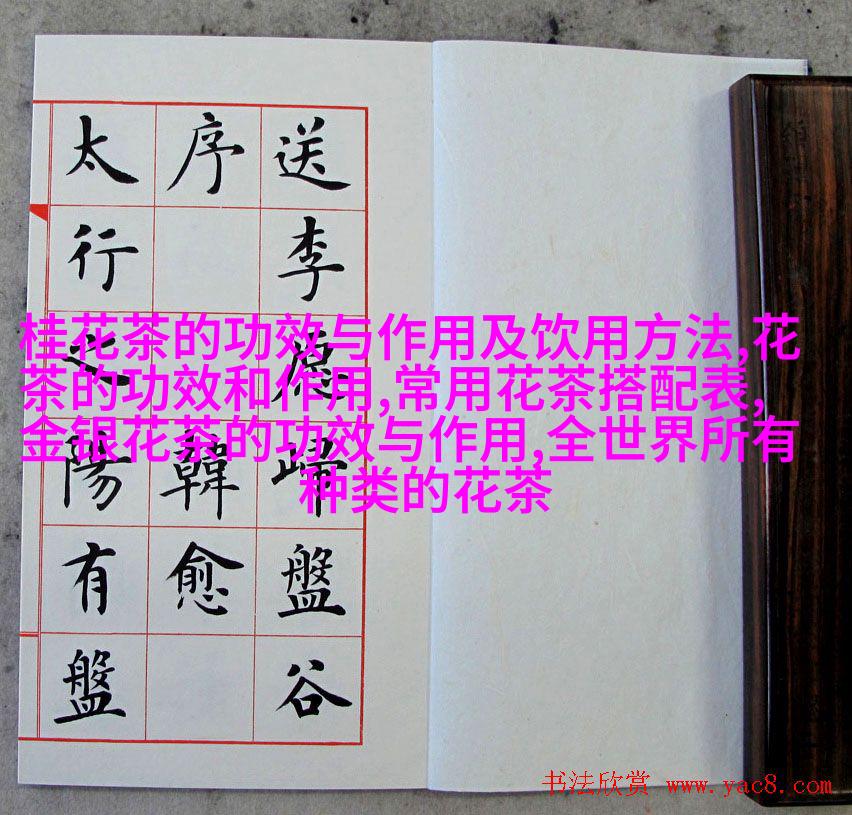 送李愿歸盤谷
序 韓愈
太行之陽有盤
桂花茶的功效与作用及饮用方法,花
茶的功效和作用,常用花茶搭配表,
金银花茶的功效与作用,全世界所有
种类的花茶
书法欣赏 www.yac8.com